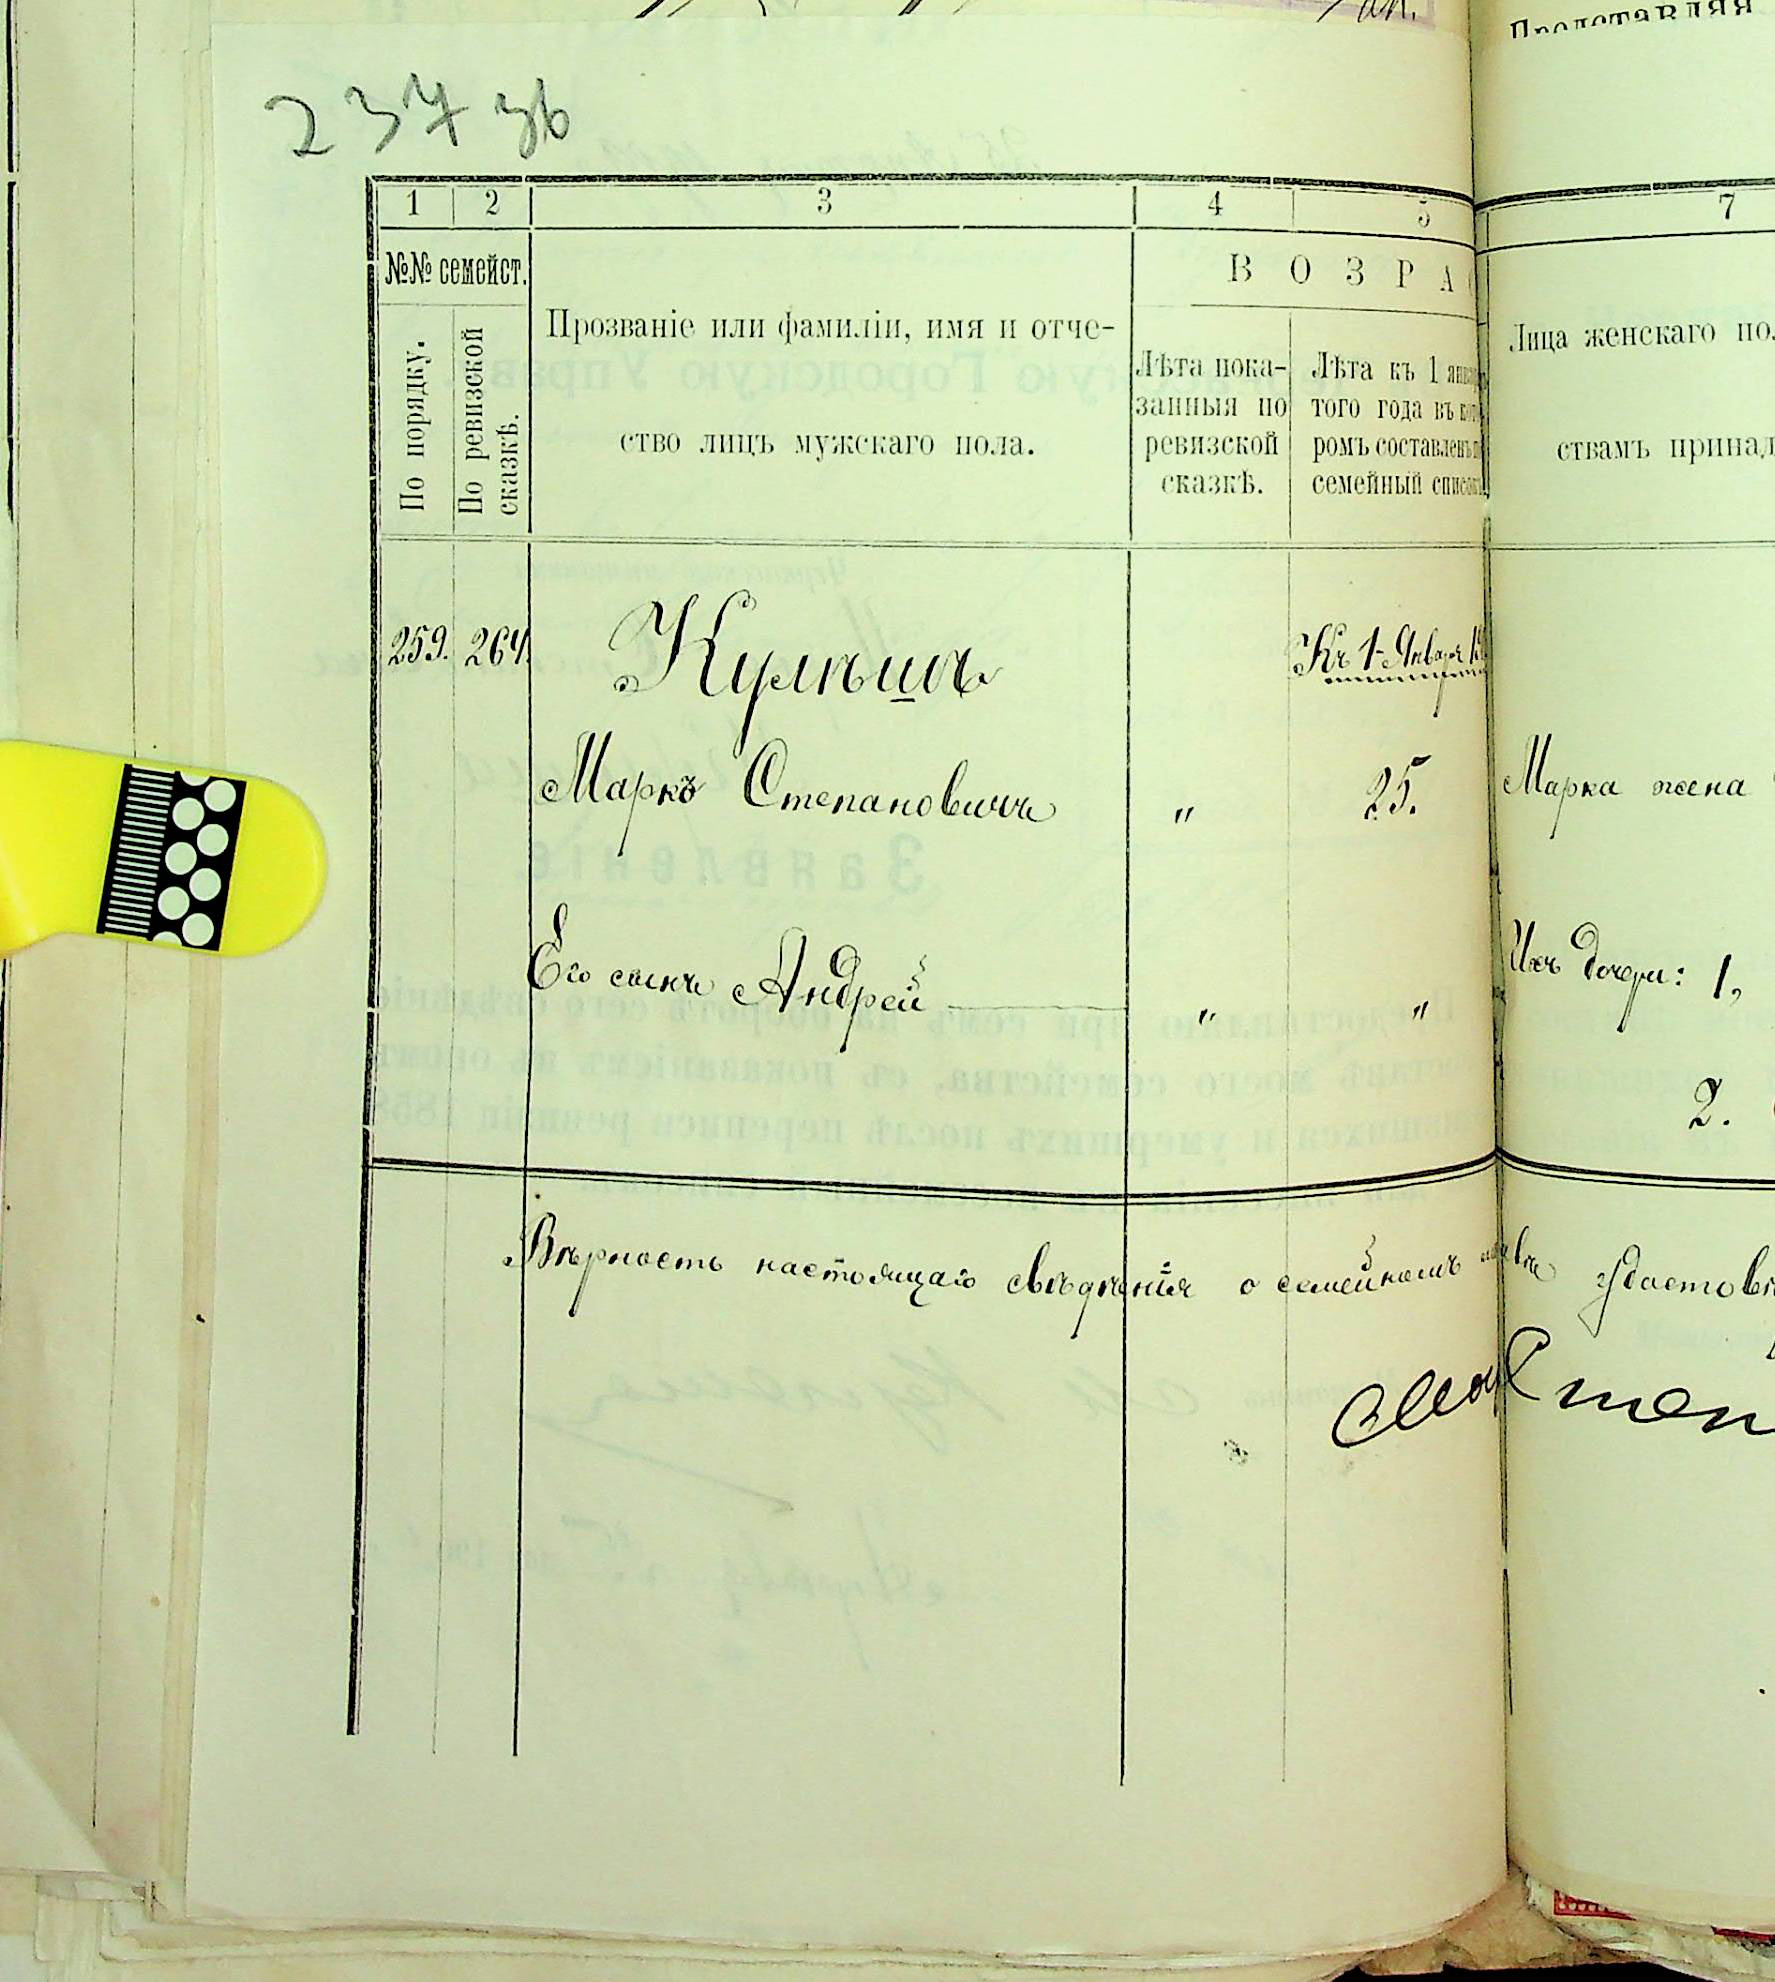 237 зв
1 2 3 4 5 7
№№ семейст.
По порядку.
По ревизской сказкѣ.
Прозваніе или фамиліи, имя и отче-
ство лицъ мужскаго пола.
ВОЗРА
Лѣта пока-
занныя по
ревизской
сказкѣ.
Лѣта къ 1 январ
того года въ кото
ромъ составленъ
семейный список
Лица женскаго по
ствамъ принад
259. 264. Кулѣшъ Къ 1 Января
Маркъ Степановичъ „ 25. Марка жена
Его сынъ Андрей „ „ Ихъ дочери: 1,
2.
Вѣрность настоящаго свѣдѣнія о семейномъ удостовѣ